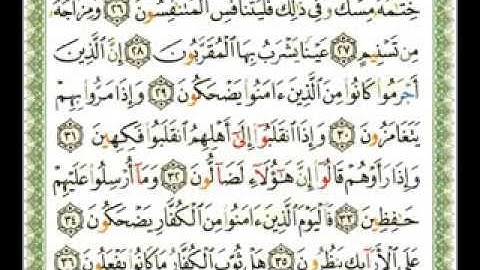 خِتَٰمُهُۥ مِسْكٌ وَفِى ذَٰلِكَ فَلْيَتَنَافَسِ ٱلْمُتَنَٰفِسُونَ ٢٦ وَمِزَاجُهُۥ
مِن تَسْنِيمٍ ٢٧ عَيْنًا يَشْرَبُ بِهَا ٱلْمُقَرَّبُونَ ٢٨ إِنَّ ٱلَّذِينَ
أَجْرَمُوا۟ كَانُوا۟ مِنَ ٱلَّذِينَ ءَامَنُوا۟ يَضْحَكُونَ ٢٩ وَإِذَا مَرُّوا۟ بِهِمْ
يَتَغَامَزُونَ ٣٠ وَإِذَا ٱنقَلَبُوٓا۟ إِلَىٰٓ أَهْلِهِمُ ٱنقَلَبُوا۟ فَكِهِينَ ٣١
وَإِذَا رَأَوْهُمْ قَالُوٓا۟ إِنَّ هَٰٓؤُلَآءِ لَضَآلُّونَ ٣٢ وَمَآ أُرْسِلُوا۟ عَلَيْهِمْ
حَٰفِظِينَ ٣٣ فَٱلْيَوْمَ ٱلَّذِينَ ءَامَنُوا۟ مِنَ ٱلْكُفَّارِ يَضْحَكُونَ ٣٤
عَلَى ٱلْأَرَآئِكِ يَنظُرُونَ ٣٥ هَلْ ثُوِّبَ ٱلْكُفَّارُ مَا كَانُوا۟ يَفْعَلُونَ ٣٦